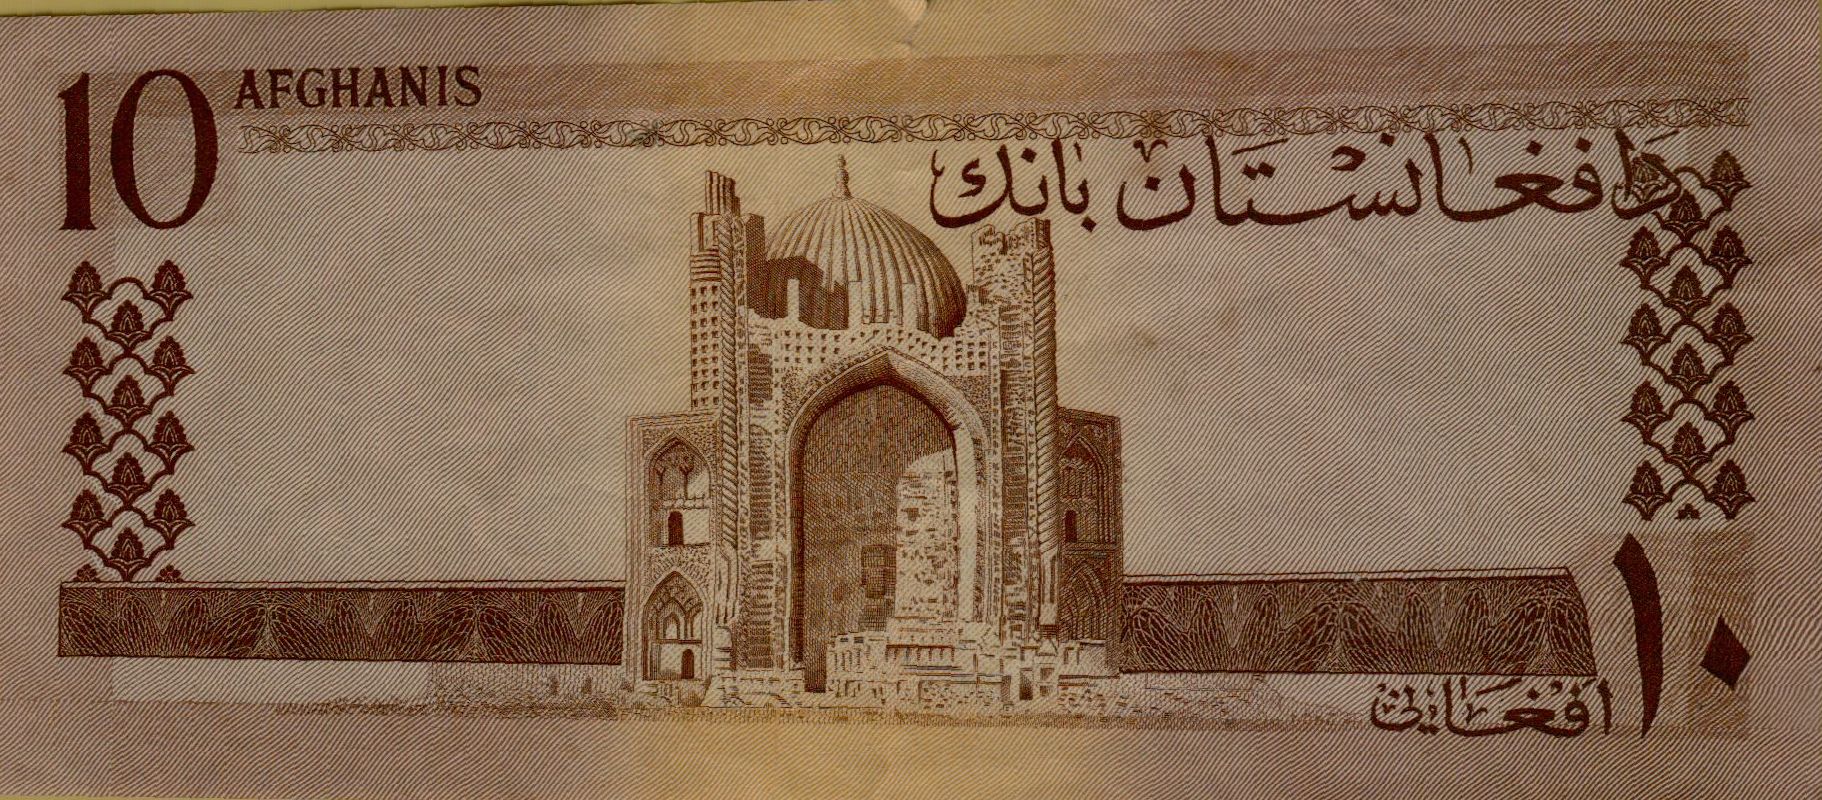 10 AFGHANIS
دافغانستان بانك
۱۰
افغانۍ